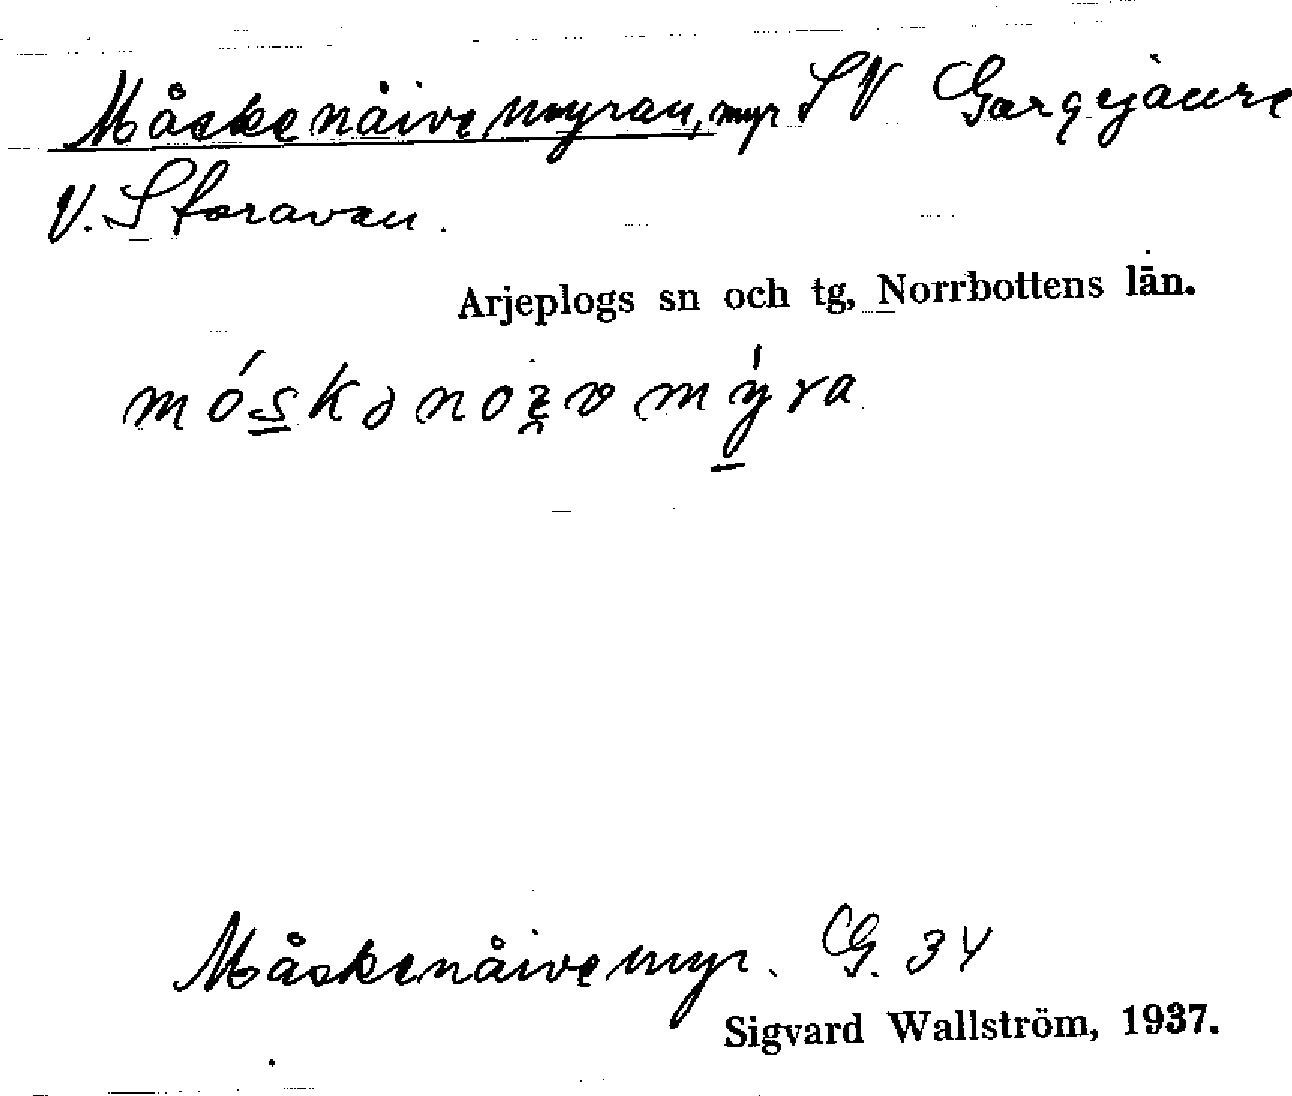 Måskenåivemyran, myr SV Gargejaure
V. Storavan.
Arjeplogs sn och tg, Norrbottens län.
Måskenåivemyr. G. 34
Sigvard Wallström, 1937.